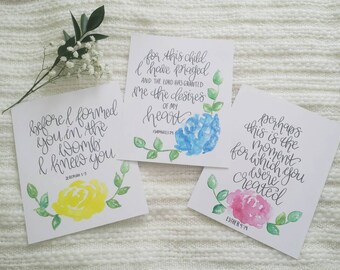 before I formed
you in the
womb
I knew you
JEREMIAH 1:5
for this child
I have prayed
AND THE LORD HAS GRANTED
me the desires
OF MY
heart
perhaps
this is the
moment
for which you
were
created
ESTHER 4:14